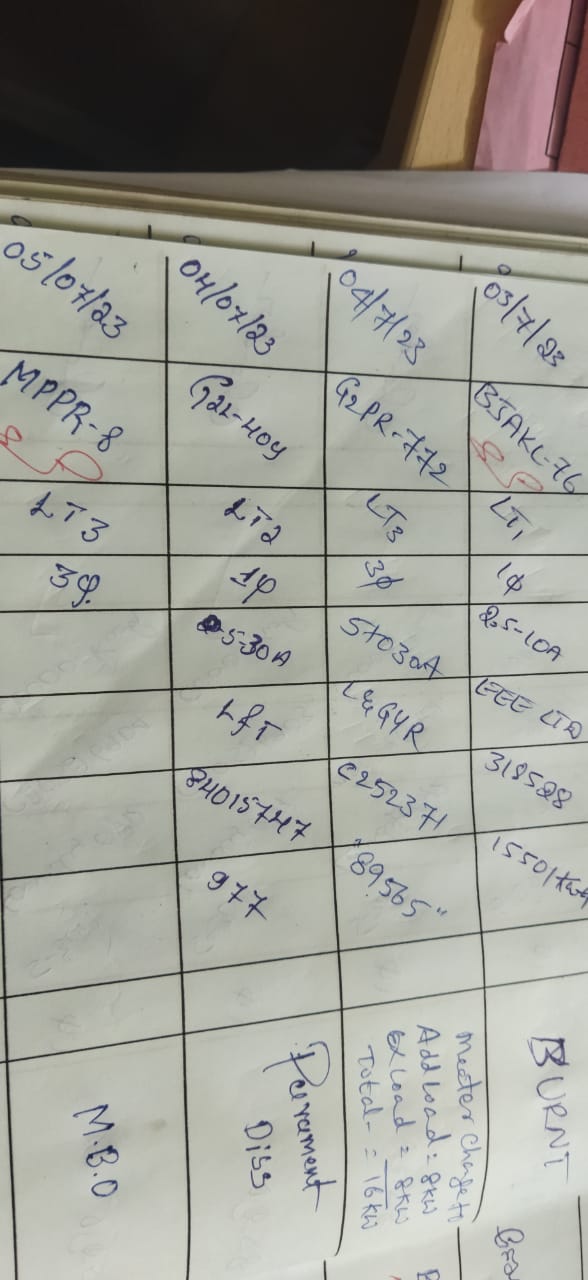 03/7/23
BJAKL-76
LT1
1φ
2.5-10A
EEE LTD
318528
15501 KWH
BURNT
04/7/23
G2PR-772
LT3
3φ
5TO30A
L&GYR
C252371
"89565"
Meeter change to
Add Load = 8KW
EX Load = 8KW
Total- = 16KW
04/07/23
G21-404
LT2
1φ
5-30A
L&T
84015747
977
Parrament
Diss
05/07/23
MPPR-8
LT3
3φ.
M.B.O